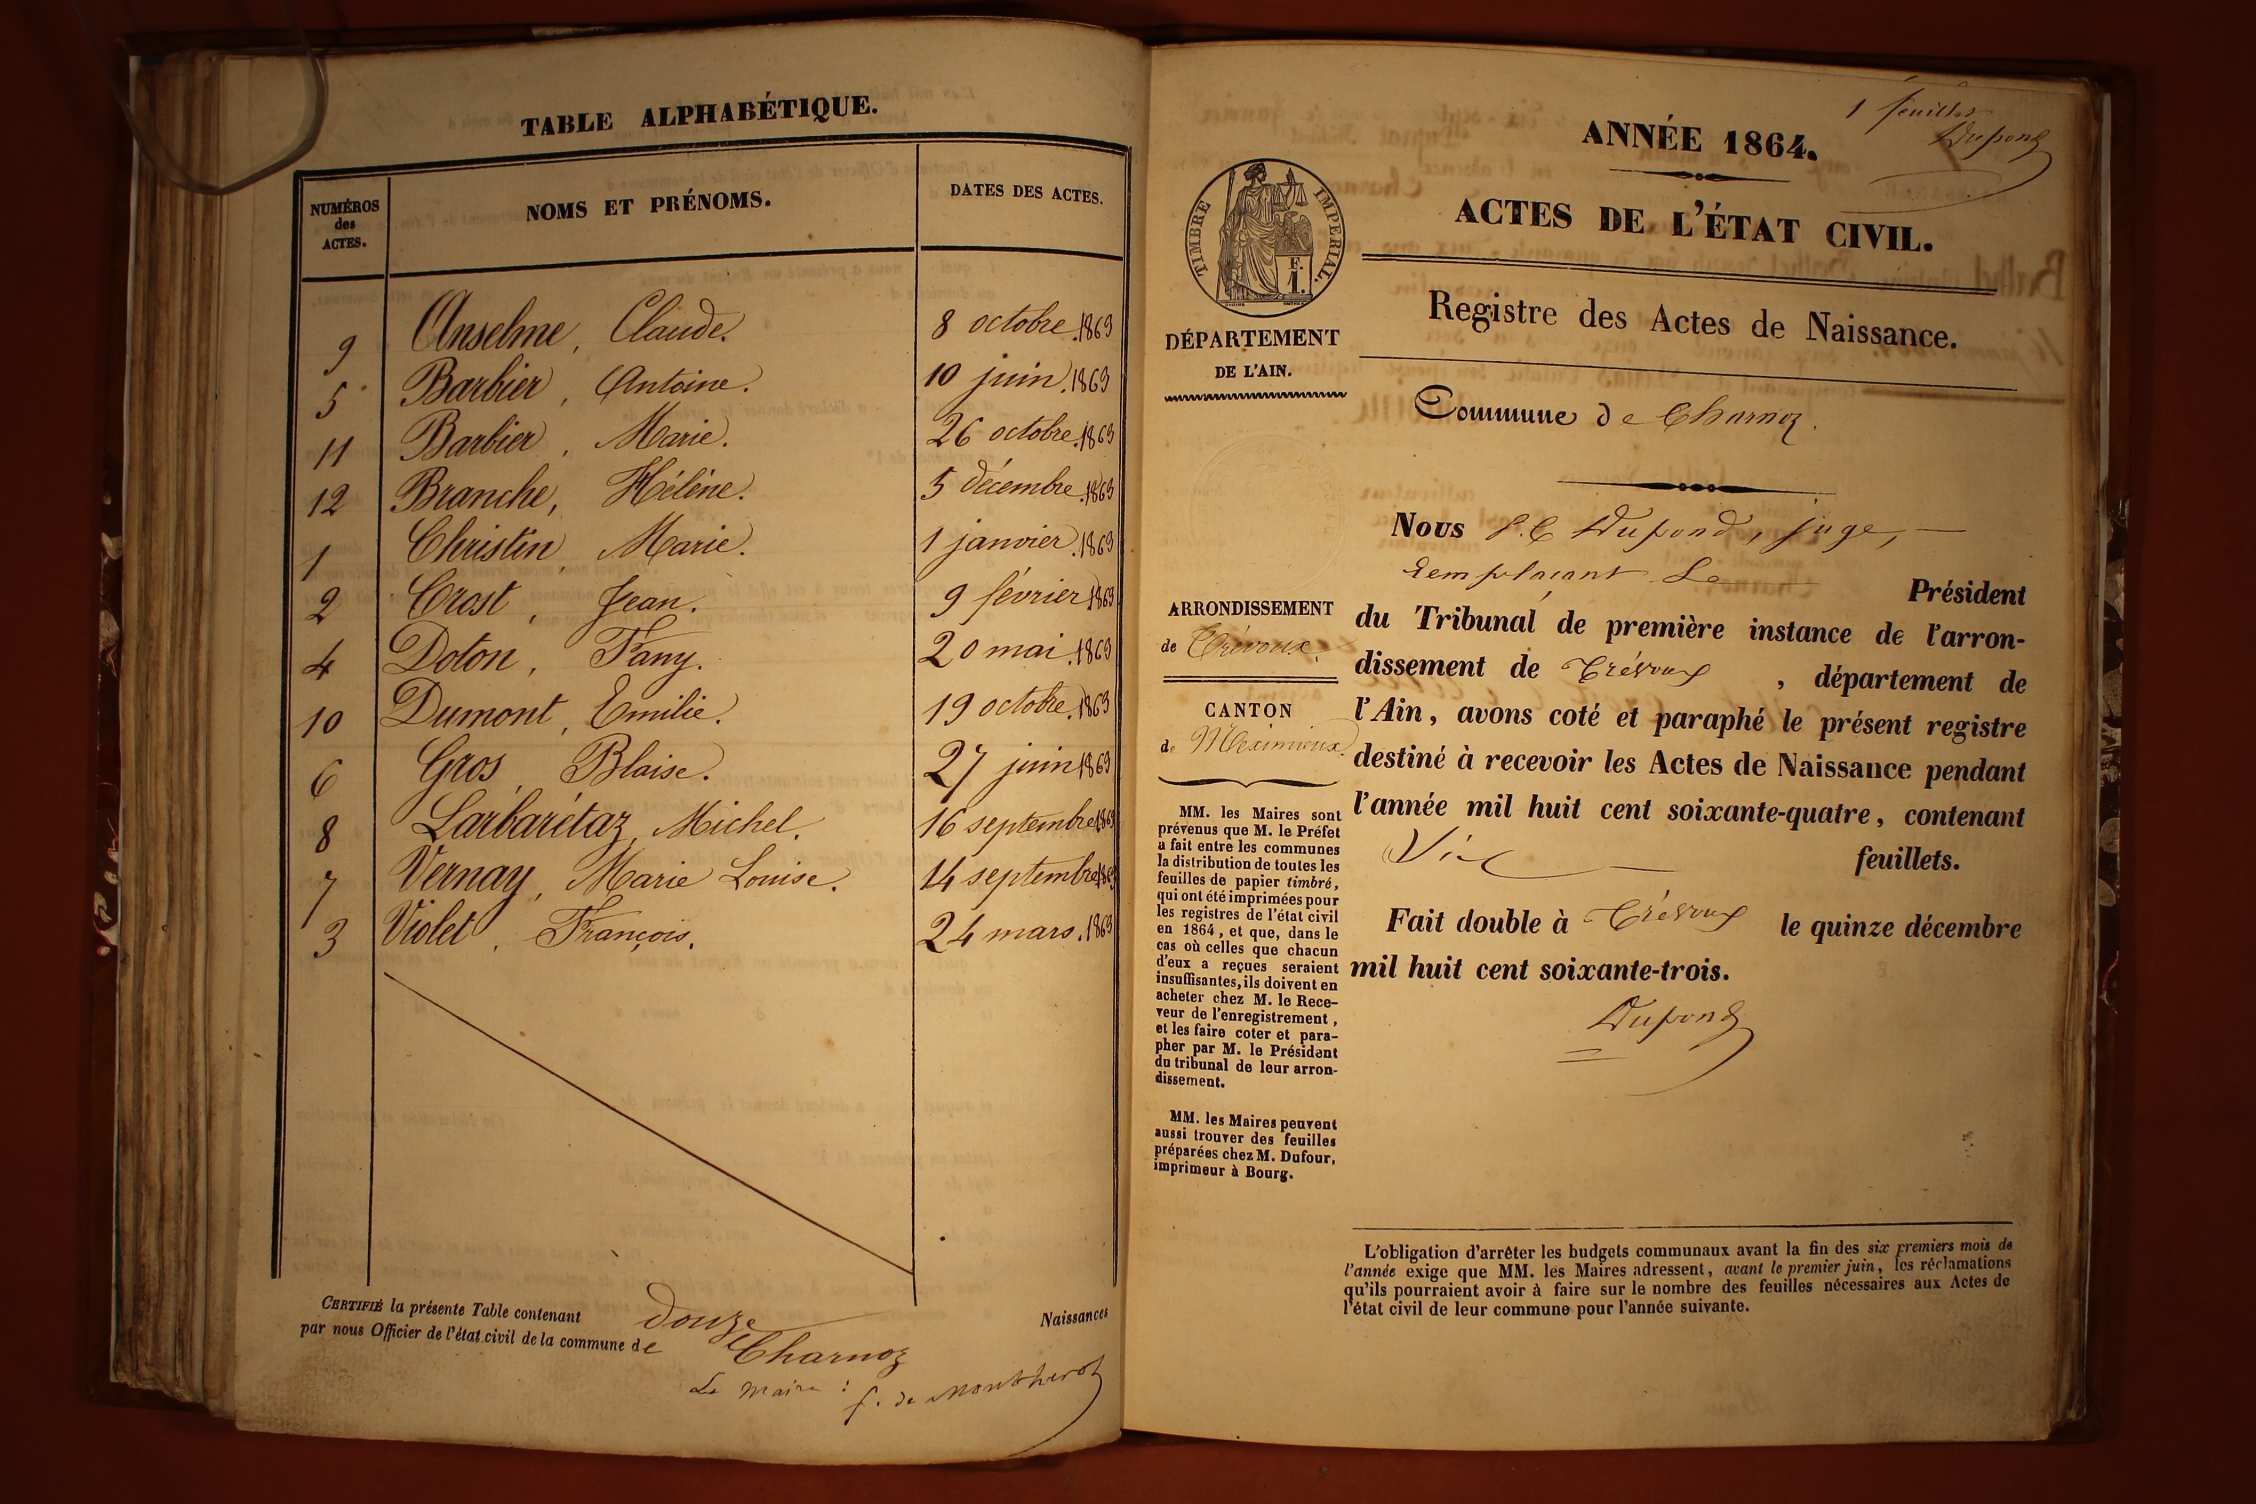 TABLE ALPHABÉTIQUE.
NUMÉROS
des
ACTES.
NOMS ET PRÉNOMS.
DATES DES ACTES.
9 Anselme, Claude. 8 octobre.1863
5 Barbier, Antoine. 10 juin.1863
11 Barbier, Marie. 26 octobre.1863
12 Branche, Hélène. 5 décembre.1863
1 Christin, Marie. 1 janvier.1863
2 Crost, Jean. 9 février 1863
4 Doton, Fany. 20 mai.1863
10 Dumont, Emilie. 19 octobre.1863
6 Gros, Blaise. 27 juin 1863
8 Larbarétaz, Michel. 16 septembre 1863
7 Vernay, Marie Louise. 14 septembre 1863
3 Violet, François. 24 mars.1863
CERTIFIÉ la présente Table contenant douze Naissances
par nous Officier de l'état civil de la commune de Charnoz
Le Maire : f. de Montherot
1 feuillet
Dupond
ANNÉE 1864.
ACTES DE L'ÉTAT CIVIL.
TIMBRE IMPERIAL.
F.
1.
DÉPARTEMENT
DE L'AIN.
Registre des Actes de Naissance.
Commune de Charnoz.
ARRONDISSEMENT
de Trévoux.
CANTON
de Meximieux.
MM. les Maires sont
prévenus que M. le Préfet
a fait entre les communes
la distribution de toutes les
feuilles de papier timbré,
qui ont été imprimées pour
les registres de l'état civil
en 1864, et que, dans le
cas où celles que chacun
d'eux a reçues seraient
insuffisantes, ils doivent en
acheter chez M. le Rece-
veur de l'enregistrement,
et les faire coter et para-
pher par M. le Président
du tribunal de leur arron-
dissement.
MM. les Maires peuvent
aussi trouver des feuilles
préparées chez M. Dufour,
imprimeur à Bourg.
Nous Dupond, juge,
remplaçant Le Président
du Tribunal de première instance de l'arron-
dissement de Trévoux, département de
l'Ain, avons coté et paraphé le présent registre
destiné à recevoir les Actes de Naissance pendant
l'année mil huit cent soixante-quatre, contenant
feuillets.
Fait double à Trévoux le quinze décembre
mil huit cent soixante-trois.
Dupond
L'obligation d'arrêter les budgets communaux avant la fin des six premiers mois de
l'année exige que MM. les Maires adressent, avant le premier juin, les réclamations
qu'ils pourraient avoir à faire sur le nombre des feuilles nécessaires aux Actes de
l'état civil de leur commune pour l'année suivante.